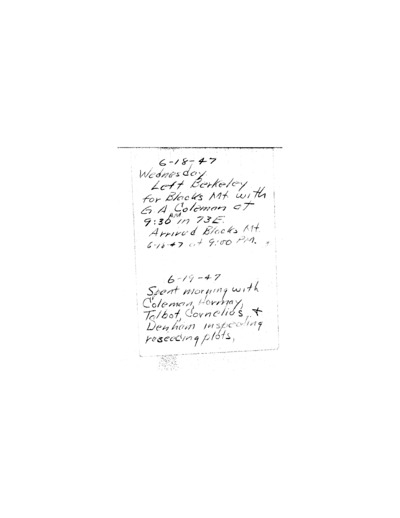 6-18-47
Wednesday
Left Berkeley
for Blacks Mt with
G A Coleman at
9:30 AM in 73E.
Arrived Blacks Mt.
6-18-47 at 9:00 P.M.
6-19-47
Spent morning with
Coleman, Hormay,
Talbot, Cornelius, &
Denham inspecting
reseeding plots.